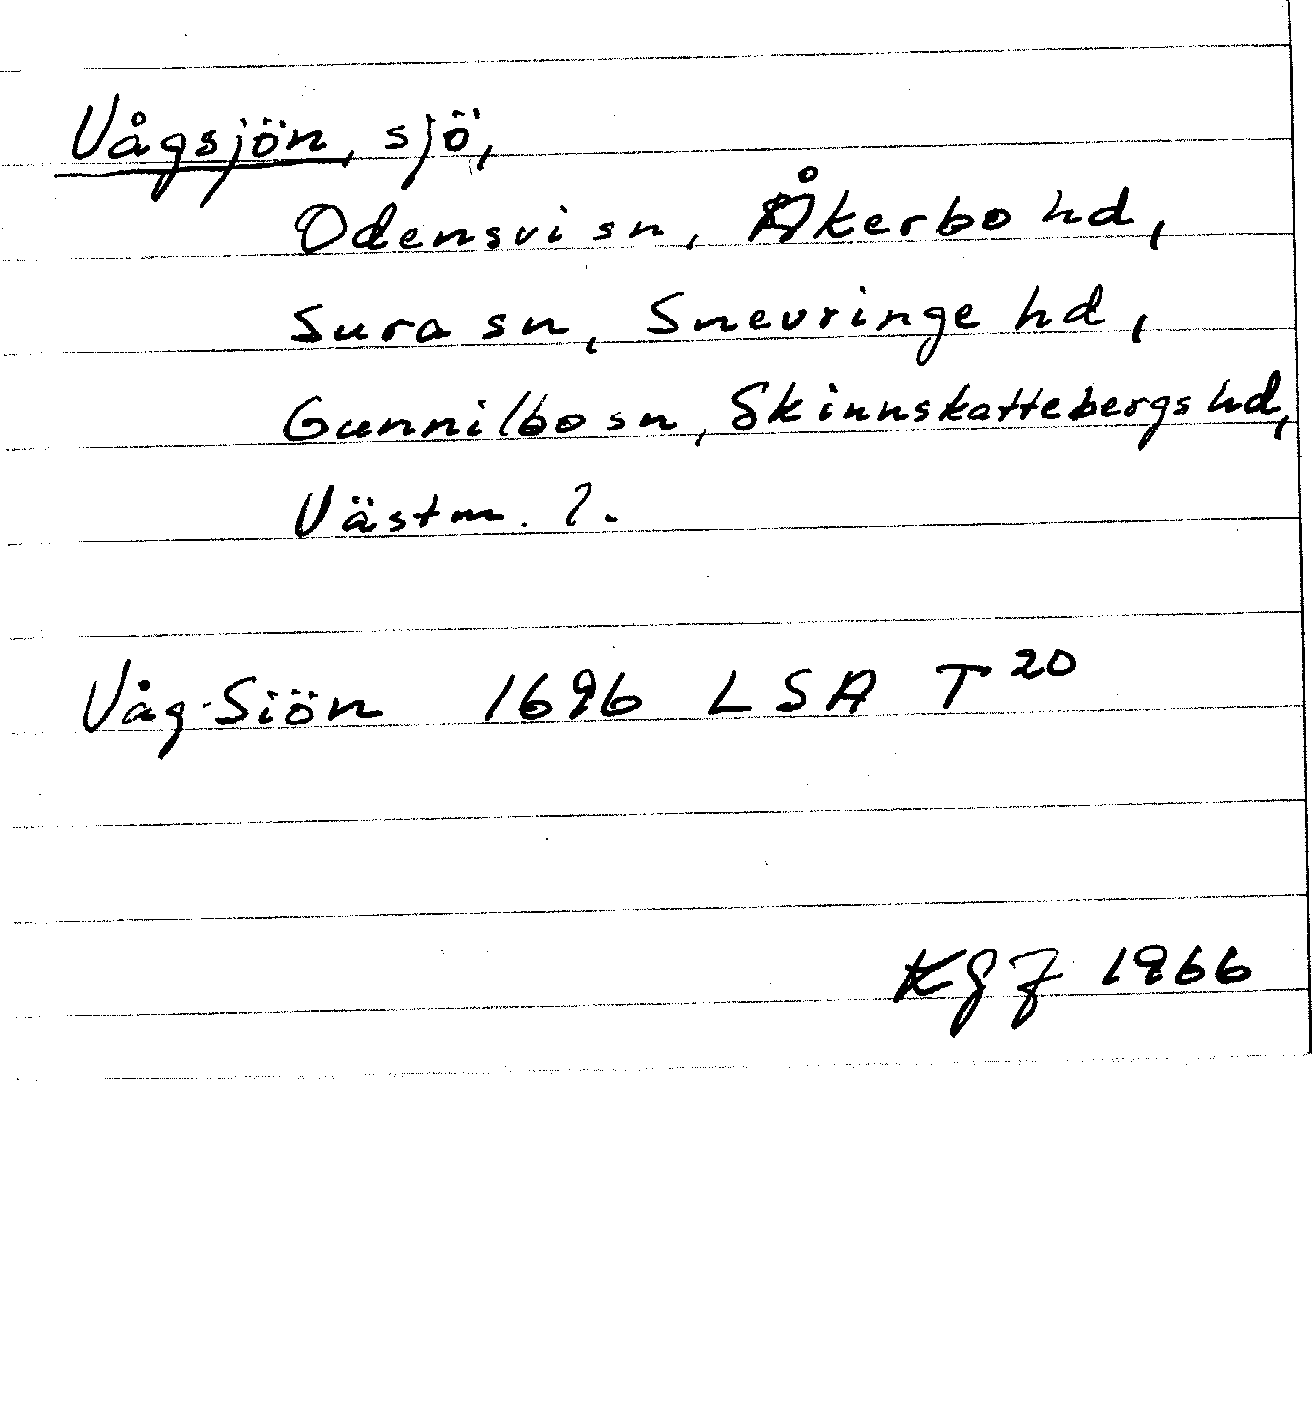 Vågsjön, sjö,
Odensvi sn, Åkerbo hd,
Sura sn, Snevringe hd,
Gunnilbo sn, Skinnskattebergs hd,
Västm. l.
Våg-Siön 1696 LSA T 20
KGJ 1966